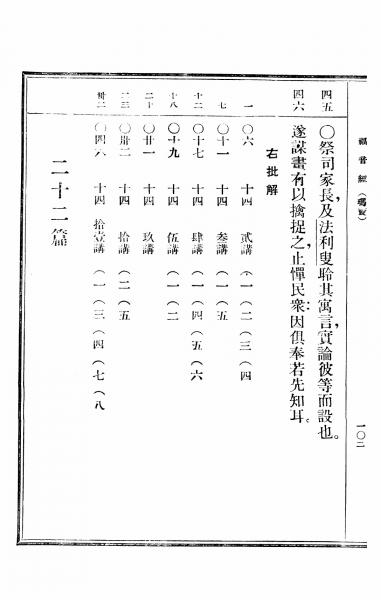 福音經(瑪竇) 一〇二
四五 〇祭司家長,及法利叟聆其寓言,實論彼等而設也。
四六 遂謀畫有以擒捉之,止憚民衆:因俱奉若先知耳。
右批解
一 〇六 十四 貳講 (一 (二 (三 (四
七 〇十一 十四 叁講 (一 (五
十二 〇十七 十四 肆講 (一 (四 (五 (六
十八 〇十九 十四 伍講 (一 (二
二十 〇廿一 十四 玖講
二三 〇卅二 十四 拾講 (二 (五
二 〇四六 十四 拾壹講 (一 (三 (四 (七 (八
二十二篇